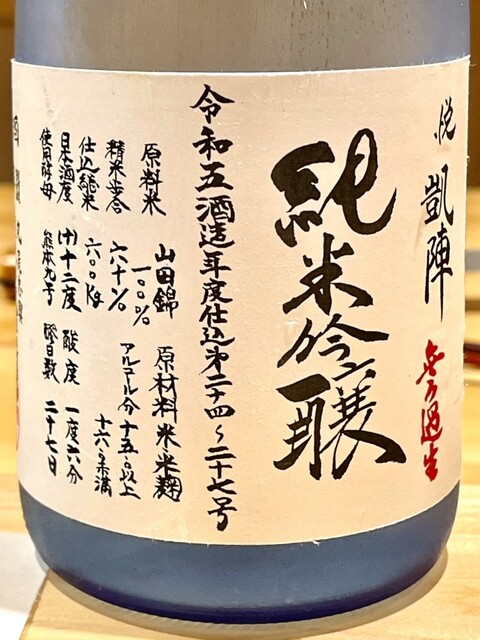 悦 凱陣 無ろ過生
純米吟醸
令和五酒造年度仕込第二十四～二十七号
原料米 山田錦 一〇〇% 原材料 米 米麹
精米歩合 六十% アルコール分 十五.〇以上 十六.〇未満
仕込総米 六〇〇kg
日本酒度 (+)十二度 酸度 一度六分
使用酵母 熊本九号 醪日数 二十七日